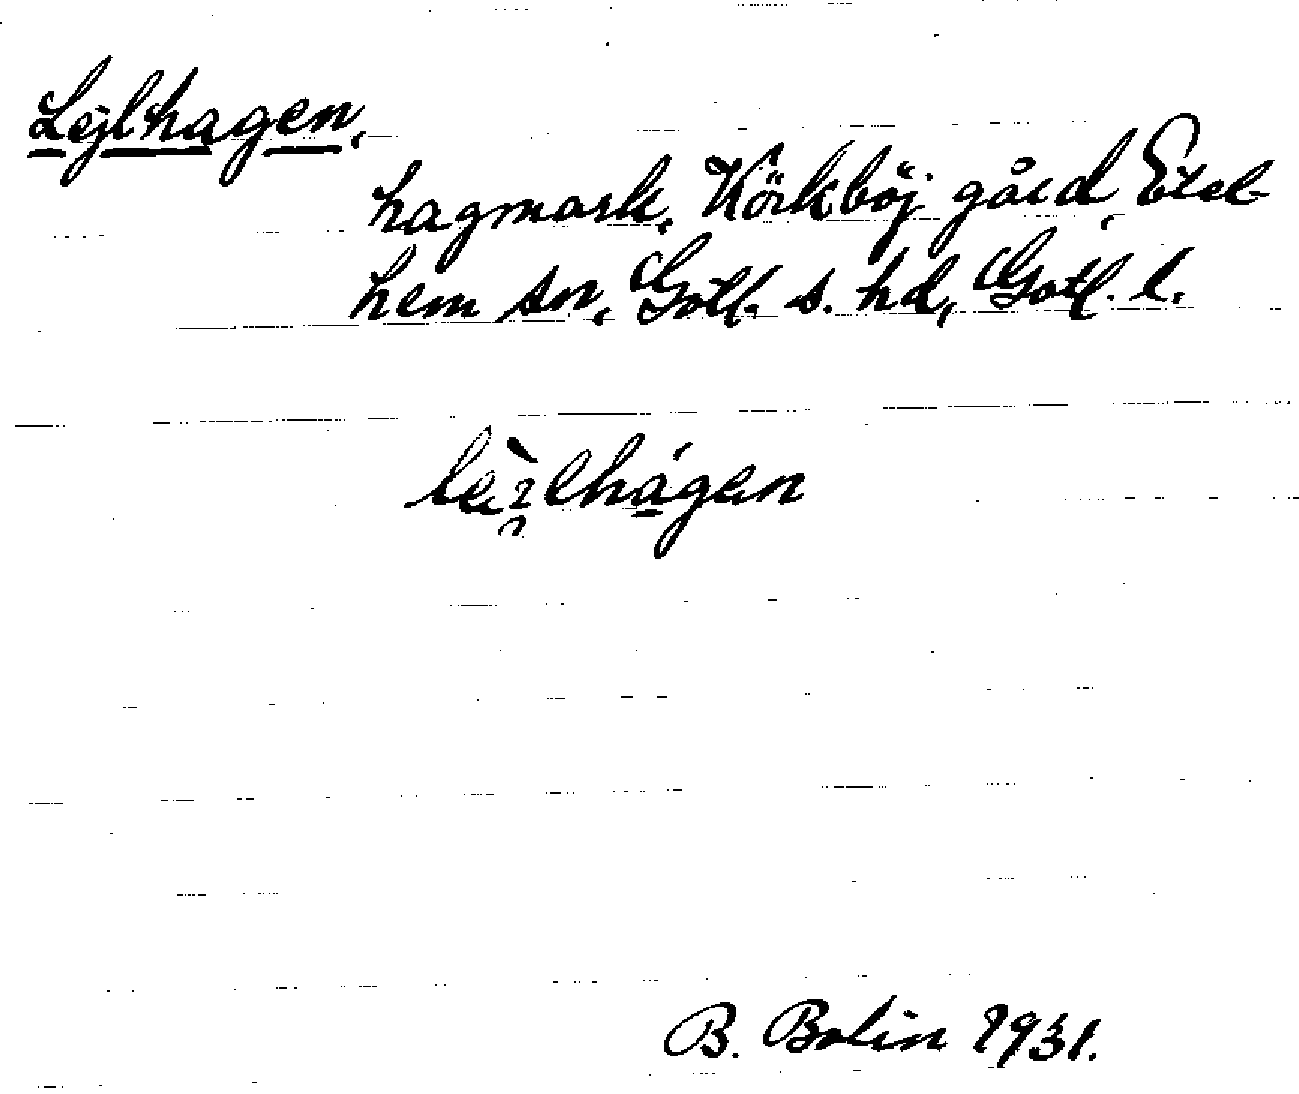 Lejlhagen,
hagmark, Körkböj gård, Etel-
hem sn, Gotl. s. hd, Gotl. l.
B. Bolin 1931.